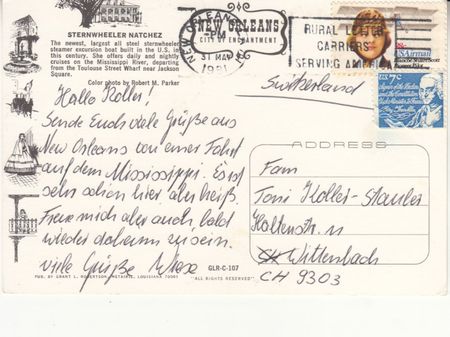 STERNWHEELER NATCHEZ
The newest, largest all steel sternwheeler
steamer excursion boat built in the U.S. in
this century. She offers daily and nightly
cruises on the Mississippi River, departing
from the Toulouse Street Wharf near Jackson
Square.
Color photo by Robert M. Parker
NEW ORLEANS
CITY OF ENCHANTMENT
PM
31 MAY
1981
RURAL LETTER
CARRIERS
SERVING AMERICA
USAirmail
US 7c
Switzerland
Hallo Koller!
Sende Euch viele Grüße aus
New Orleans von einer Fahrt
auf dem Mississippi. Es ist
sehr schön hier aber heiß.
Freue mich aber auch bald
wieder daheim zu sein.
viele Grüße
ADDRESS
Fam
Toni Koller-Stauber
11
Wittenbach
CH 9303
GLR-C-107
PUB. BY GRANT L. ROBERTSON, METAIRIE, LOUISIANA 70005
"ALL RIGHTS RESERVED"